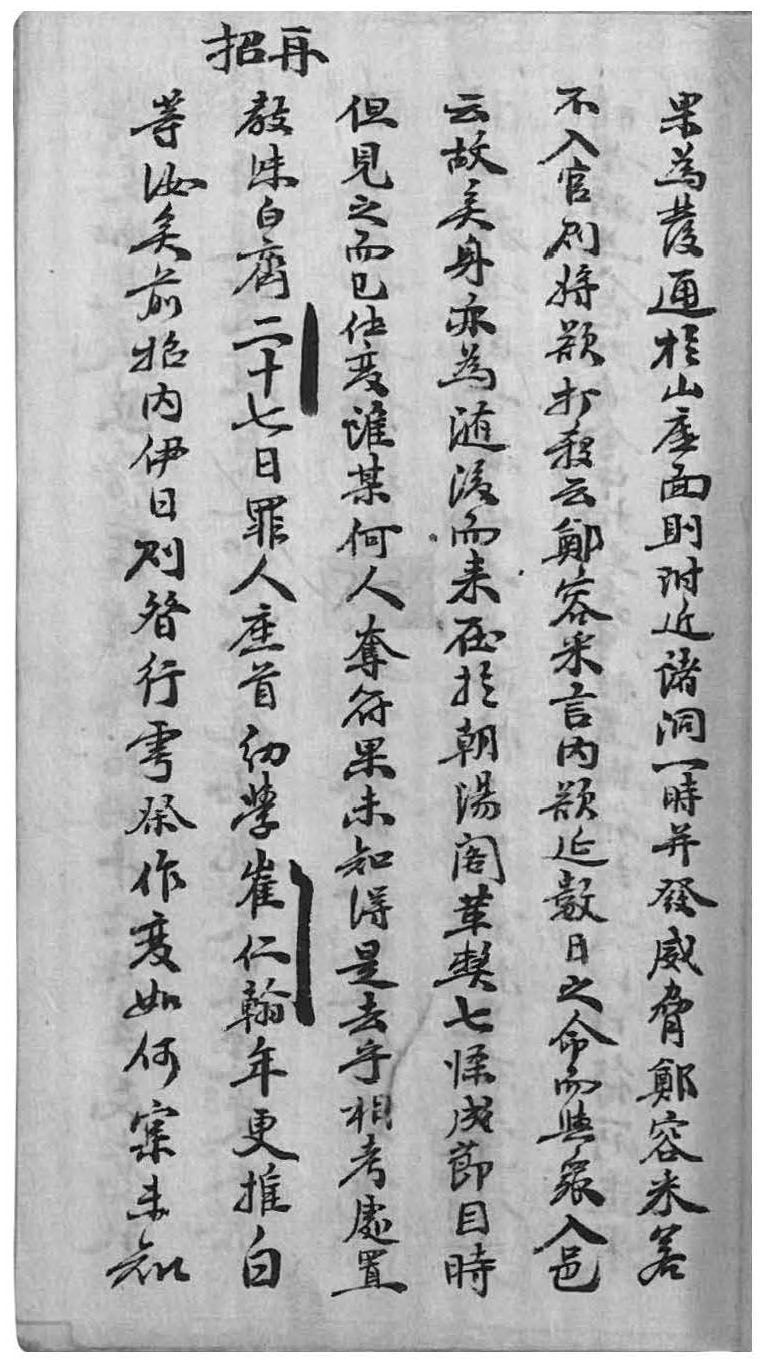 再招
果為發通於山底面則附近諸洞一時并發威脅鄭容米若
不入官則將欲打殺云鄭容米言內欲延數日之命而與衆入邑
云故矣身亦為隨後而來到於朝陽阁革弊七條成節目時
但見之而已作變誰某何人奪符果未知得是去乎相考處置
教味白齊二十七日罪人座首幼學崔仁翰年更推白
等汝矣前招內伊日則暫行雩祭作変如何案未知